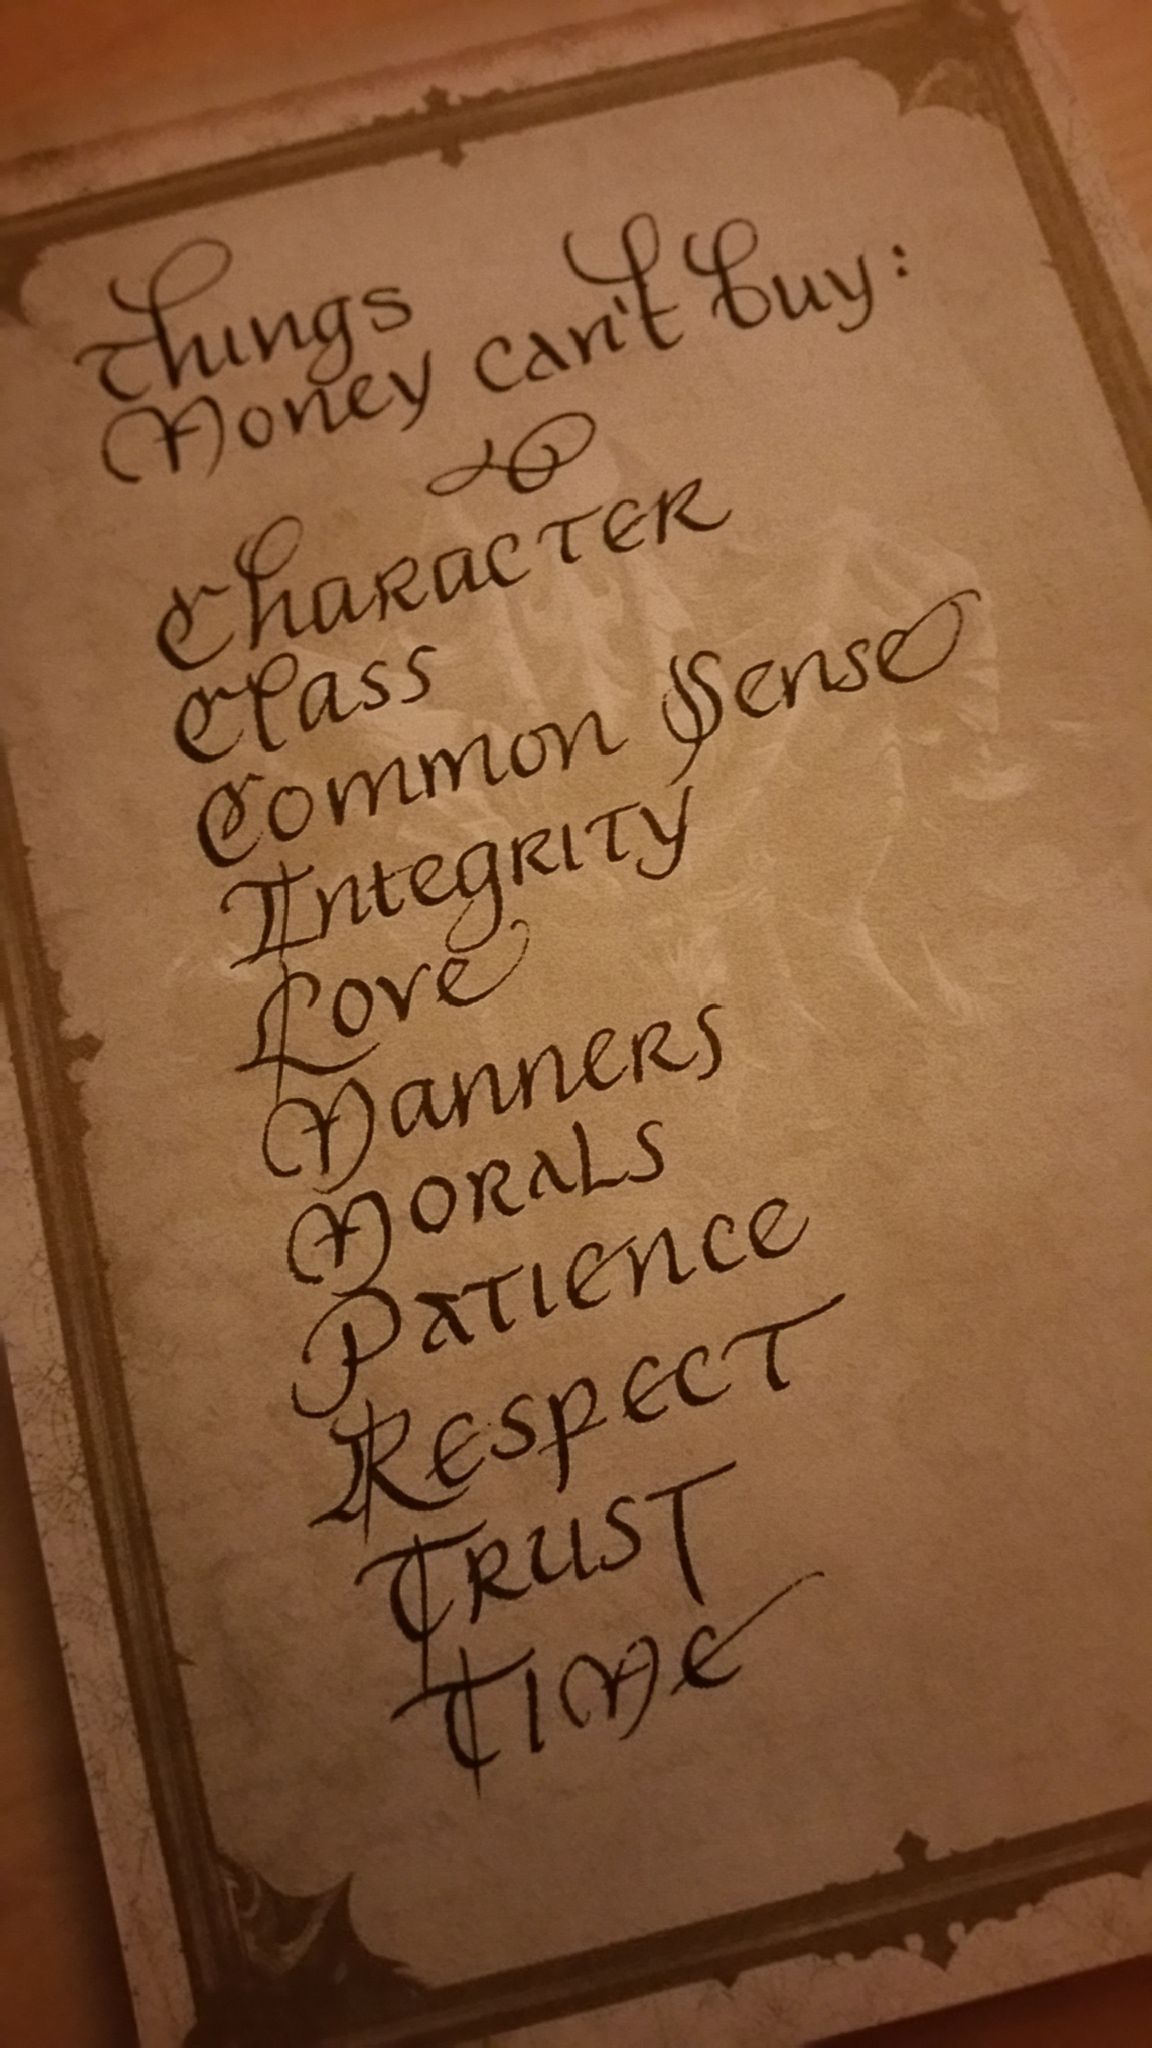 Things
Money can't buy:
Character
Class
Common Sense
Integrity
Love
Manners
Morals
Patience
Respect
Trust
Time